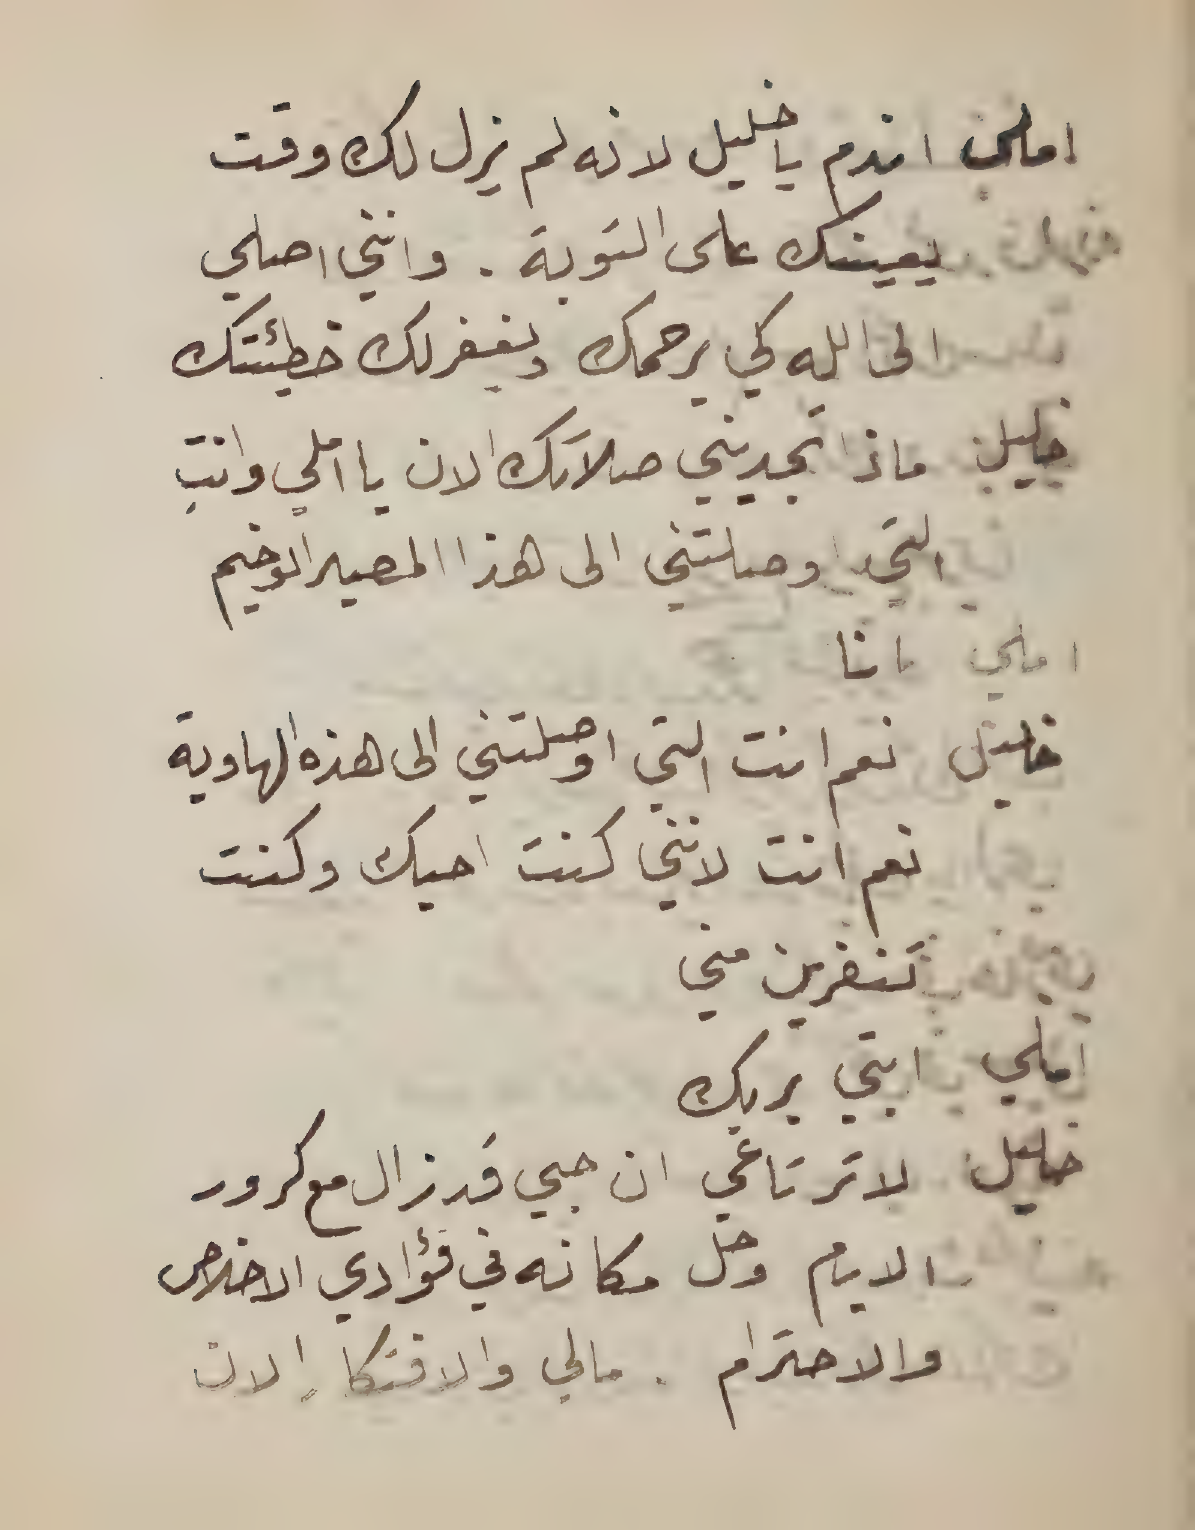 املي اندم يا خليل لانه لم يزل لك وقت
يعينك على التوبة . وانني اصلي
الى الله كي يرحمك ويغفر لك خطيئتك
خليل ماذا تجديني صلاتك الان يا املي وانتِ
التي اوصلتني الى هذا المصير الوخيم
املي انا
خليل نعم انت التي اوصلتني الى هذه الهاوية
نعم انت لانني كنت احبك وكنت
تنفرين مني
املي ابتي بربك
خليل لا ترتاعي ان حبي قد زال مع كرور
الايام وحل مكانه في فؤادي الاخلاص
والاحترام . مالي والافتكار الان